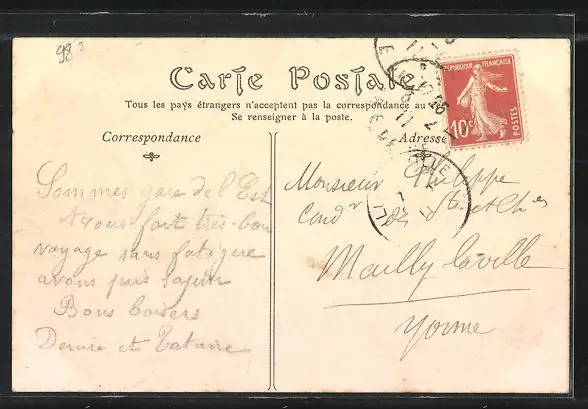 98
Carte Postale
Tous les pays étrangers n'acceptent pas la correspondance au
Se renseigner à la poste.
Correspondance
Adresse
REPUBLIQUE FRANÇAISE
10c
POSTES
Sommes gare de l'Est
Avons fait très bon
voyage sans fatigue
avons pris sapin
Bons baisers
Denise et
Monsieur Philippe
Condr de Pts et Ches
Mailly la ville
Yonne